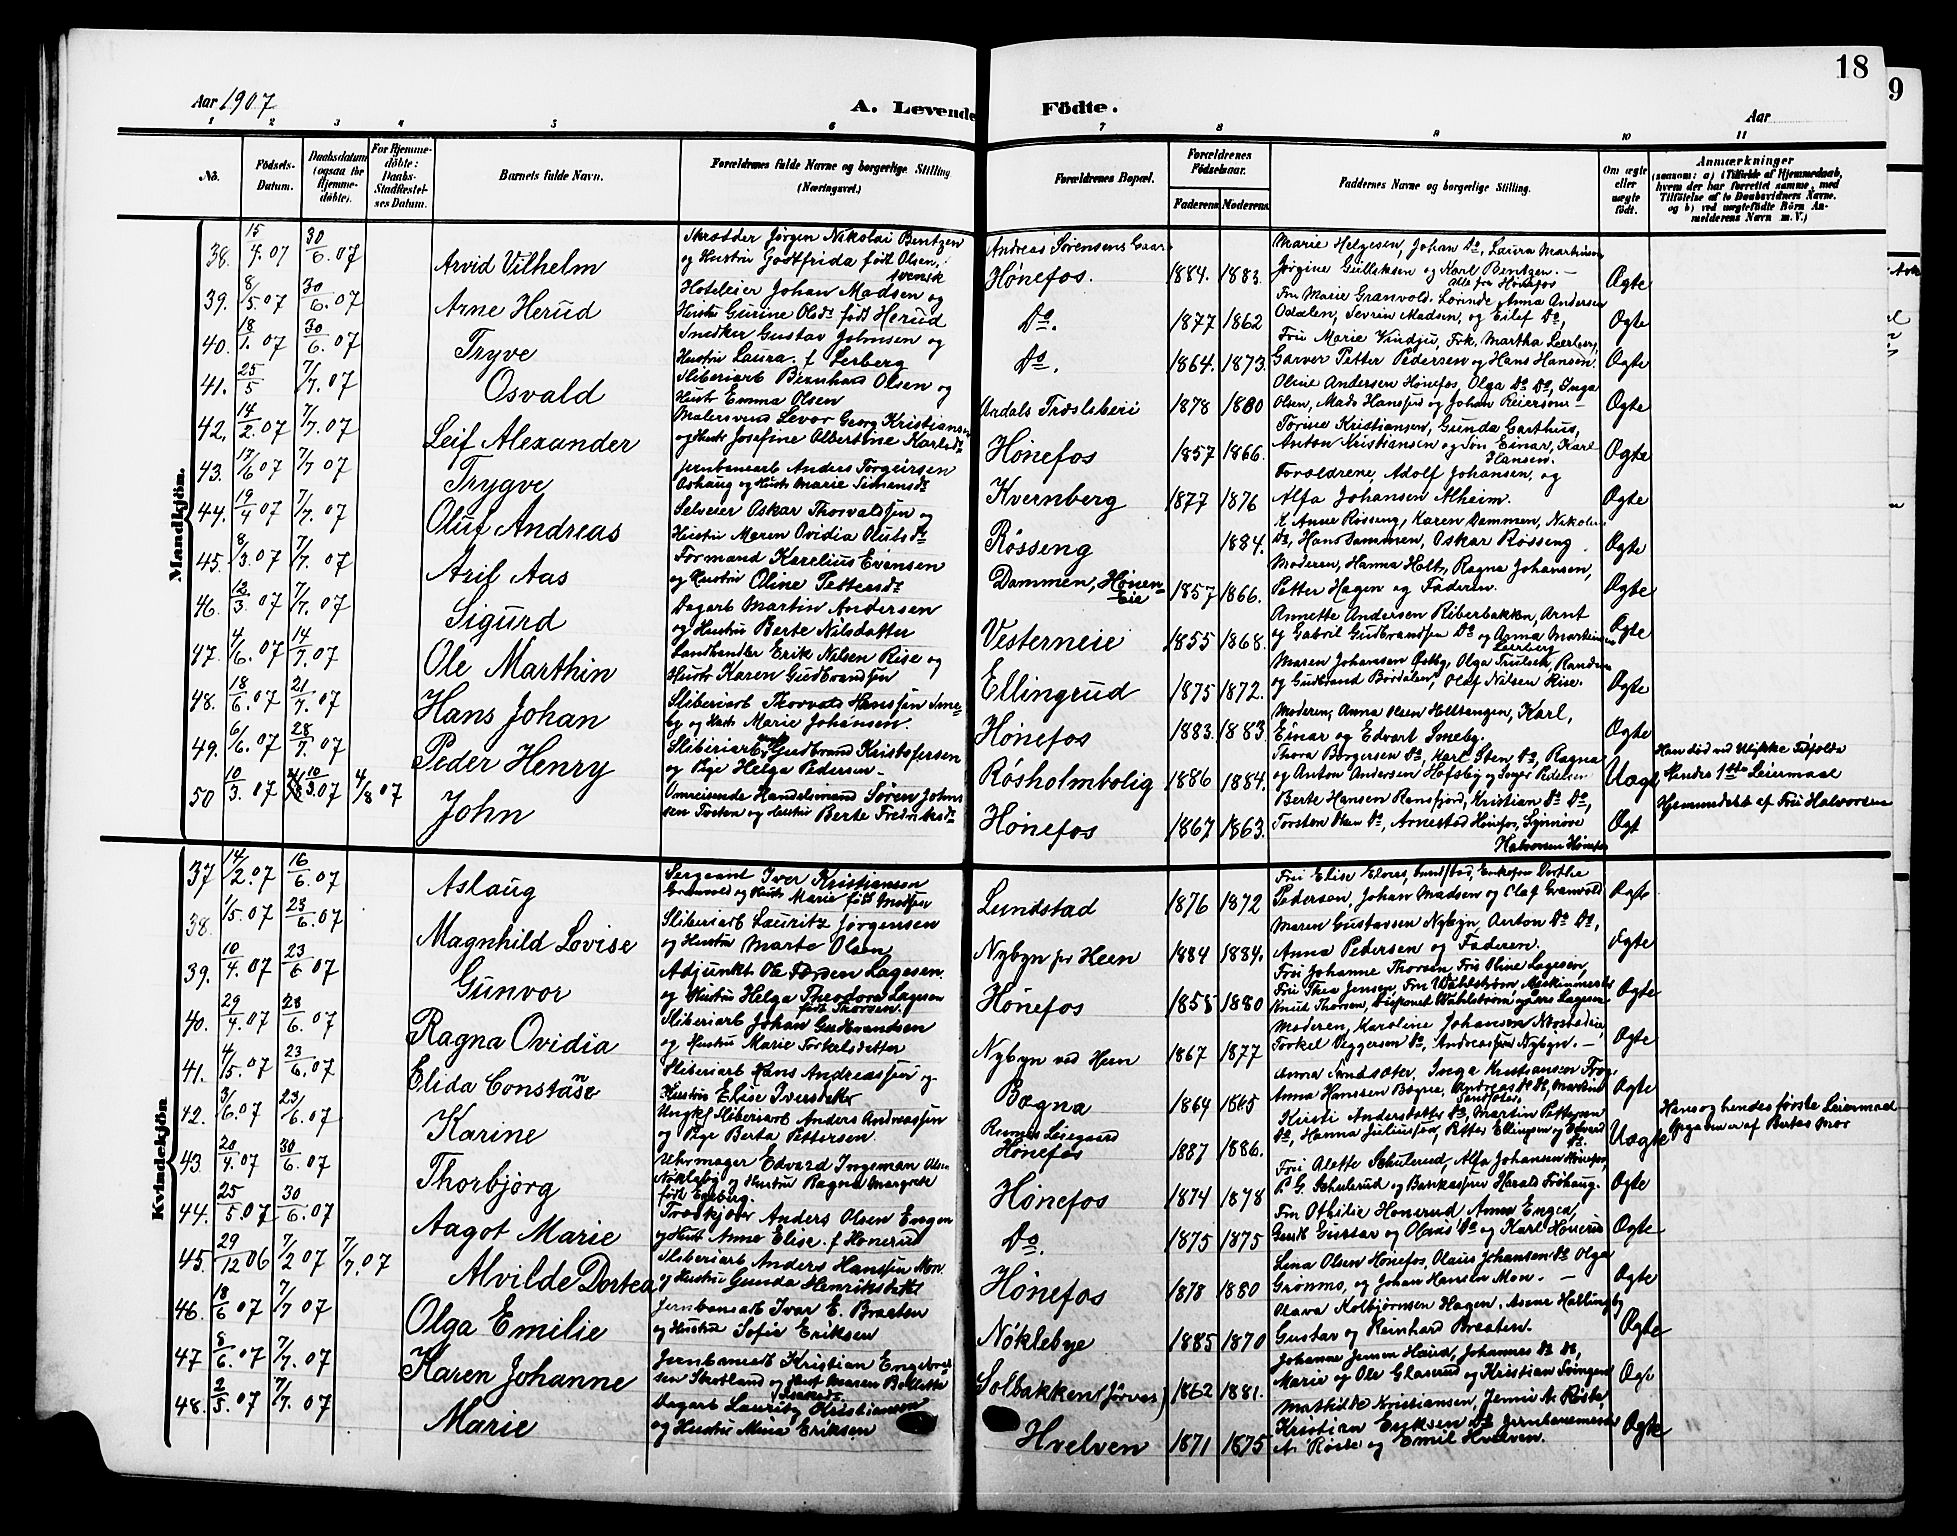 18
9
Aar 1907
A. Levende Födte.
Aar
1 2 3 4 5 6 7 8 9 10 11
No.
Födsels-Datum.
Daabsdatum (ogsaa for Hjemme-döbte).
For Hjemme-döbte: Daabs-Stadfæstelses Datum.
Barnets fulde Navn.
Forældrenes fulde Navne og borgerlige Stilling (Næringsvei.)
Forældrenes Bopæl.
Forældrenes Födselsaar.
Faderens Moderens
Faddernes Navne og borgerlige Stilling.
Om ægte eller uægte födt.
Anmærkninger
(saasom: a) i Tilfælde af Hjemmedaab, hvem der har forrettet samme, med Tilföielse af to Daabsvidners Navne, og b) ved uægtefödte Börn Anmelderens Navn m. V.)
Mandkjön.
38. 15/4.07 30/6.07 Arvid Vilhelm
Skrædder Jørgen Nikolai Bentzen
og Hustru Godtfrida født Olsen, svensk
Andreas Sørensens Gaar
Hønefos. 1884. 1883.
Marie Helgesen, Johan Do, Laura Martinsen
Jørgine Gulliksen og Karl Bentzen. – alle fra Hønefos
Ægte
39. 8/5.07 30/6.07 Arne Herud
Hoteleier Johan Madsen og
Hustr Gurine Olsdt født Herud
Do. 1877 1862
Fru Marie Granvold, Anna Andersen
Odalen, Sevrin Madsen, og Eilef Do,
Ægte
40. 18/1.07 30/6.07 Tryve
Snedker Gustav Johnsen og
Hustru Laura f Lerberg
Do. 1864. 1873.
Fru Marie Vindju, Frk. Martha Leerberg,
Garver Petter Pedersen og Hans Hansen.
Ægte
41. 25/5 7/7.07 Osvald
Sliberiarb Bernhard Olsen og
Hustr Emma Olsen
Ardals Træsliberi 1878 1880
Oline Andersen Hønefos, Olga Do Do, Inga
Olsen, Mads Hansen og Johan Reiersen –
Ægte
42. 14/2.07 7/7.07 Leif Alexander
Malersvend Levor Georg Kristiansen
og Hustr Josefine Albertine Karlsdt
Hønefos 1857 1866.
Torine Kristiansen, Gunda Garthus,
Anton Kristiansen og Søn Einar, Karl Hansen.
Ægte
43. 17/6.07 7/7.07 Trygve
Jernbanearb Anders Torgeirsen
Oshaug og Hustr Marie Simensdt
Kvernberg 1877 1876
Forældrene, Adolf Johansen, og
Alfa Johansen Alheim.
Ægte
44. 19/4.07 7/7.07 Oluf Andreas
Selveier Oskar Thorvaldsen og
Hustru Maren Ovidia Olutsdt
Røsseng 1884.
K. Anne Røsseng, Karen Dammen, Nikolai
Do, Hans Dammen, Oskar Røsseng.
Ægte
45. 8/3.07 7/7.07 Arif Aas
Formand Karelius Evensen
og Hustru Oline Pettersdt
Dammen, Hønen-Eie 1857 1866.
Moderen, Hanna Holt, Ragna Johansen,
Petter Hagen og Faderen.
Ægte
46. 12/3.07 7/7.07 Sigurd
Dagarb Martin Andersen
og Hustru Berte Nilsdatter
Vesterneie 1855 1868.
Annette Andersen Riberbakken, Arnt
og Gabril Gudbrandsen Do og Anna Martinsen Leerberg
Ægte
47. 4/6.07 14/7.07 Ole Marthin
Landhandler Erik Nilsen Rise og
Hustr Karen Gudbrandsen
Ellingrud 1875 1872.
Maren Johansen Østby, Olga Trulsen, Randine
og Gudbrand Bordalen, Olaf Nilsen Rise.
Ægte
48. 18/6.07 21/7.07 Hans Johan
Sliberiarb Thorvald Hanssen Sme-
by og Hustr Marie Johansen.
Hønefos 1883. 1883
Moderen, Anna Olsen Helltangen, Karl,
Einar og Edvart Smeby.
Ægte
49. 6/6.07 28/7.07 Peder Henry
Sliberiarb Gudbrand Kristofersen
og Pige Helga Pedersen –
Røsholmbolig 1886 1884.
Thora Borgersen Do, Karl Sten Do, Ragna
og Anton Andersen Hofsby og Pedersen
Uægt
Han død ved Ulykke Tilfælde
Hendes 1ste Leiermaal
50 10/3.07 10/3.07 4/8 07 John
Omreisende Handelsmand Søren Johns
sen og Hustru Berte Fredriksdt
Hønefos 1867 1863.
Berte Hansen Ransfjord, Kristian Do Do,
Torsten Olsen Do, Arnestad Hønefos, Synnøve
Halvorsen Hønefos
Ægt
Hjemmedøbt af Fru Halvorsen
Kvindekjön
37 14/2.07 16/6.07 Aslaug
Sergeant Iver Kristiansen
Granvold og Hustr Marie født Madsen
Lundstad 1876 1872
Fru Elise Lundstad, Enkefru Dorthe
Pedersen, Johan Madsen og Olaf Granvold
Ægte
38. 1/5.07 23/6.07 Magnhild Lovise
Sliberiarb Lauritz Jørgensen
og Hustru Marte Olsen
Nybyn pr Heen 1884 1884.
Maren Gustavsen Nybyn, Anton Do Do,
Anna Pedersen og Faderen.
Ægte
39. 10/4.07 23/6.07 Gunvor
Adjunkt Ole Larsen Lagesen.
og Hustru Helga Theodora Lagesen født Thorsen.
Hønefos 1858 1880
Fru Johanne Thorsen, Frk Oline Lagesen,
Fru Thea Jensen, Fru Wahlstrøm Maskinmester
Knud Thorsen, Disponet Wahlstrøm og Lars Lagesen
Ægte
40. 29/4.07 28/6.07 Ragna Ovidia
Sliberiarb Johan Gudbrandsen
og Hustru Marie Torkelsdatter
Nybyn ved Heen 1867 1877
Moderen, Karoline Johansen,
Torkel Veggersen Do, Andreassen Nybyn. –
Ægte
41. 4/5.07 23/6.07 Elida Constanse
Sliberiarb Hans Andreassen og
Hustru Elise Iversdatter
Bægna 1864 1865
Anna Sandsæter, Inga Kristiansen
Anna Hanssen Bægna, Andreas Do Do, Martin Sandsæter
Ægte
42. 3/6.07 23/6.07 Karine
Ungkf Sliberiarb Anders Andreassen
og Pige Berta Pettersen.
Løsegaard Hønefos 1887 1886.
Kirsti Andersdatter Do, Martin Pettersen
Do, Hanna Juliussen, Petter Ellingsen og Edvard Do.
Uægte
Hans og hendes første Leiermaal
Opgaven er af Bertas Mor
43. 20/4.07 30/6.07 Thorbjørg
Uhrmager Edvard Ingeman Olsen
Nøkleby og Hustru Ragna Margrete født Enberg.
Hønefos 1874 1878
Fru Alette Schulerud, Alfa Johansen Hønefos,
L. G. Schulerud og Bankassrer Harald Frøhaug.
Ægte
44. 25/5.07 30/6.07 Aagot Marie
Træskjører Anders Olsen Engen
og Hustr Anne Elise. f Honerud
Do. 1875 1875
Fru Othilie Honerud, Anna Engen,
Gusk Gustav og Olaus Do og Karl Honerud
Ægte
45. 29/12 06 7/2 07 7/7.07 Alvilde Dortea
Sliberiarb Anders Hanssen Mon.
og Hustru Gunda Henriksdtt
Hønefos 1878 1880
Lina Olsen Hønefos, Olaus Johansen Do Olga
Grønmo, og Johan Hansen Mon. –
Ægte
46. 18/6 07 7/7 07 Olga Emilie
Jernbanearb Ivar E. Braaten
og Hustru Sofie Eriksen
Nøklebye 1885 1870
Olava Kolbjørnsen Hagen, Asene Hallingby
Gustav og Reinhard Braaten.
Ægte
47 8/6.07 7/7.07 Karen Johanne
Jernbanearb Kristian Engebret
sen Skotland og Hust Maren Bollette
Solbakken (Jørvas) 1862 1881.
Johanne Jensen Haud, Johannes Do Do,
Marie og Ole Glaserud og Kristian Svingen
Ægt
48. 2/5.07 7/7.07 Marie
Dagarb Lauritz Kristiansen
og Hustru Mina Eriksen
Hvelven 1871 1875
Mathilde Kristiansen, Jenni A. Røste,
Kristian Eriksen Do Jernbanemester
A. Røste og Emil Hvelven.
Ægte